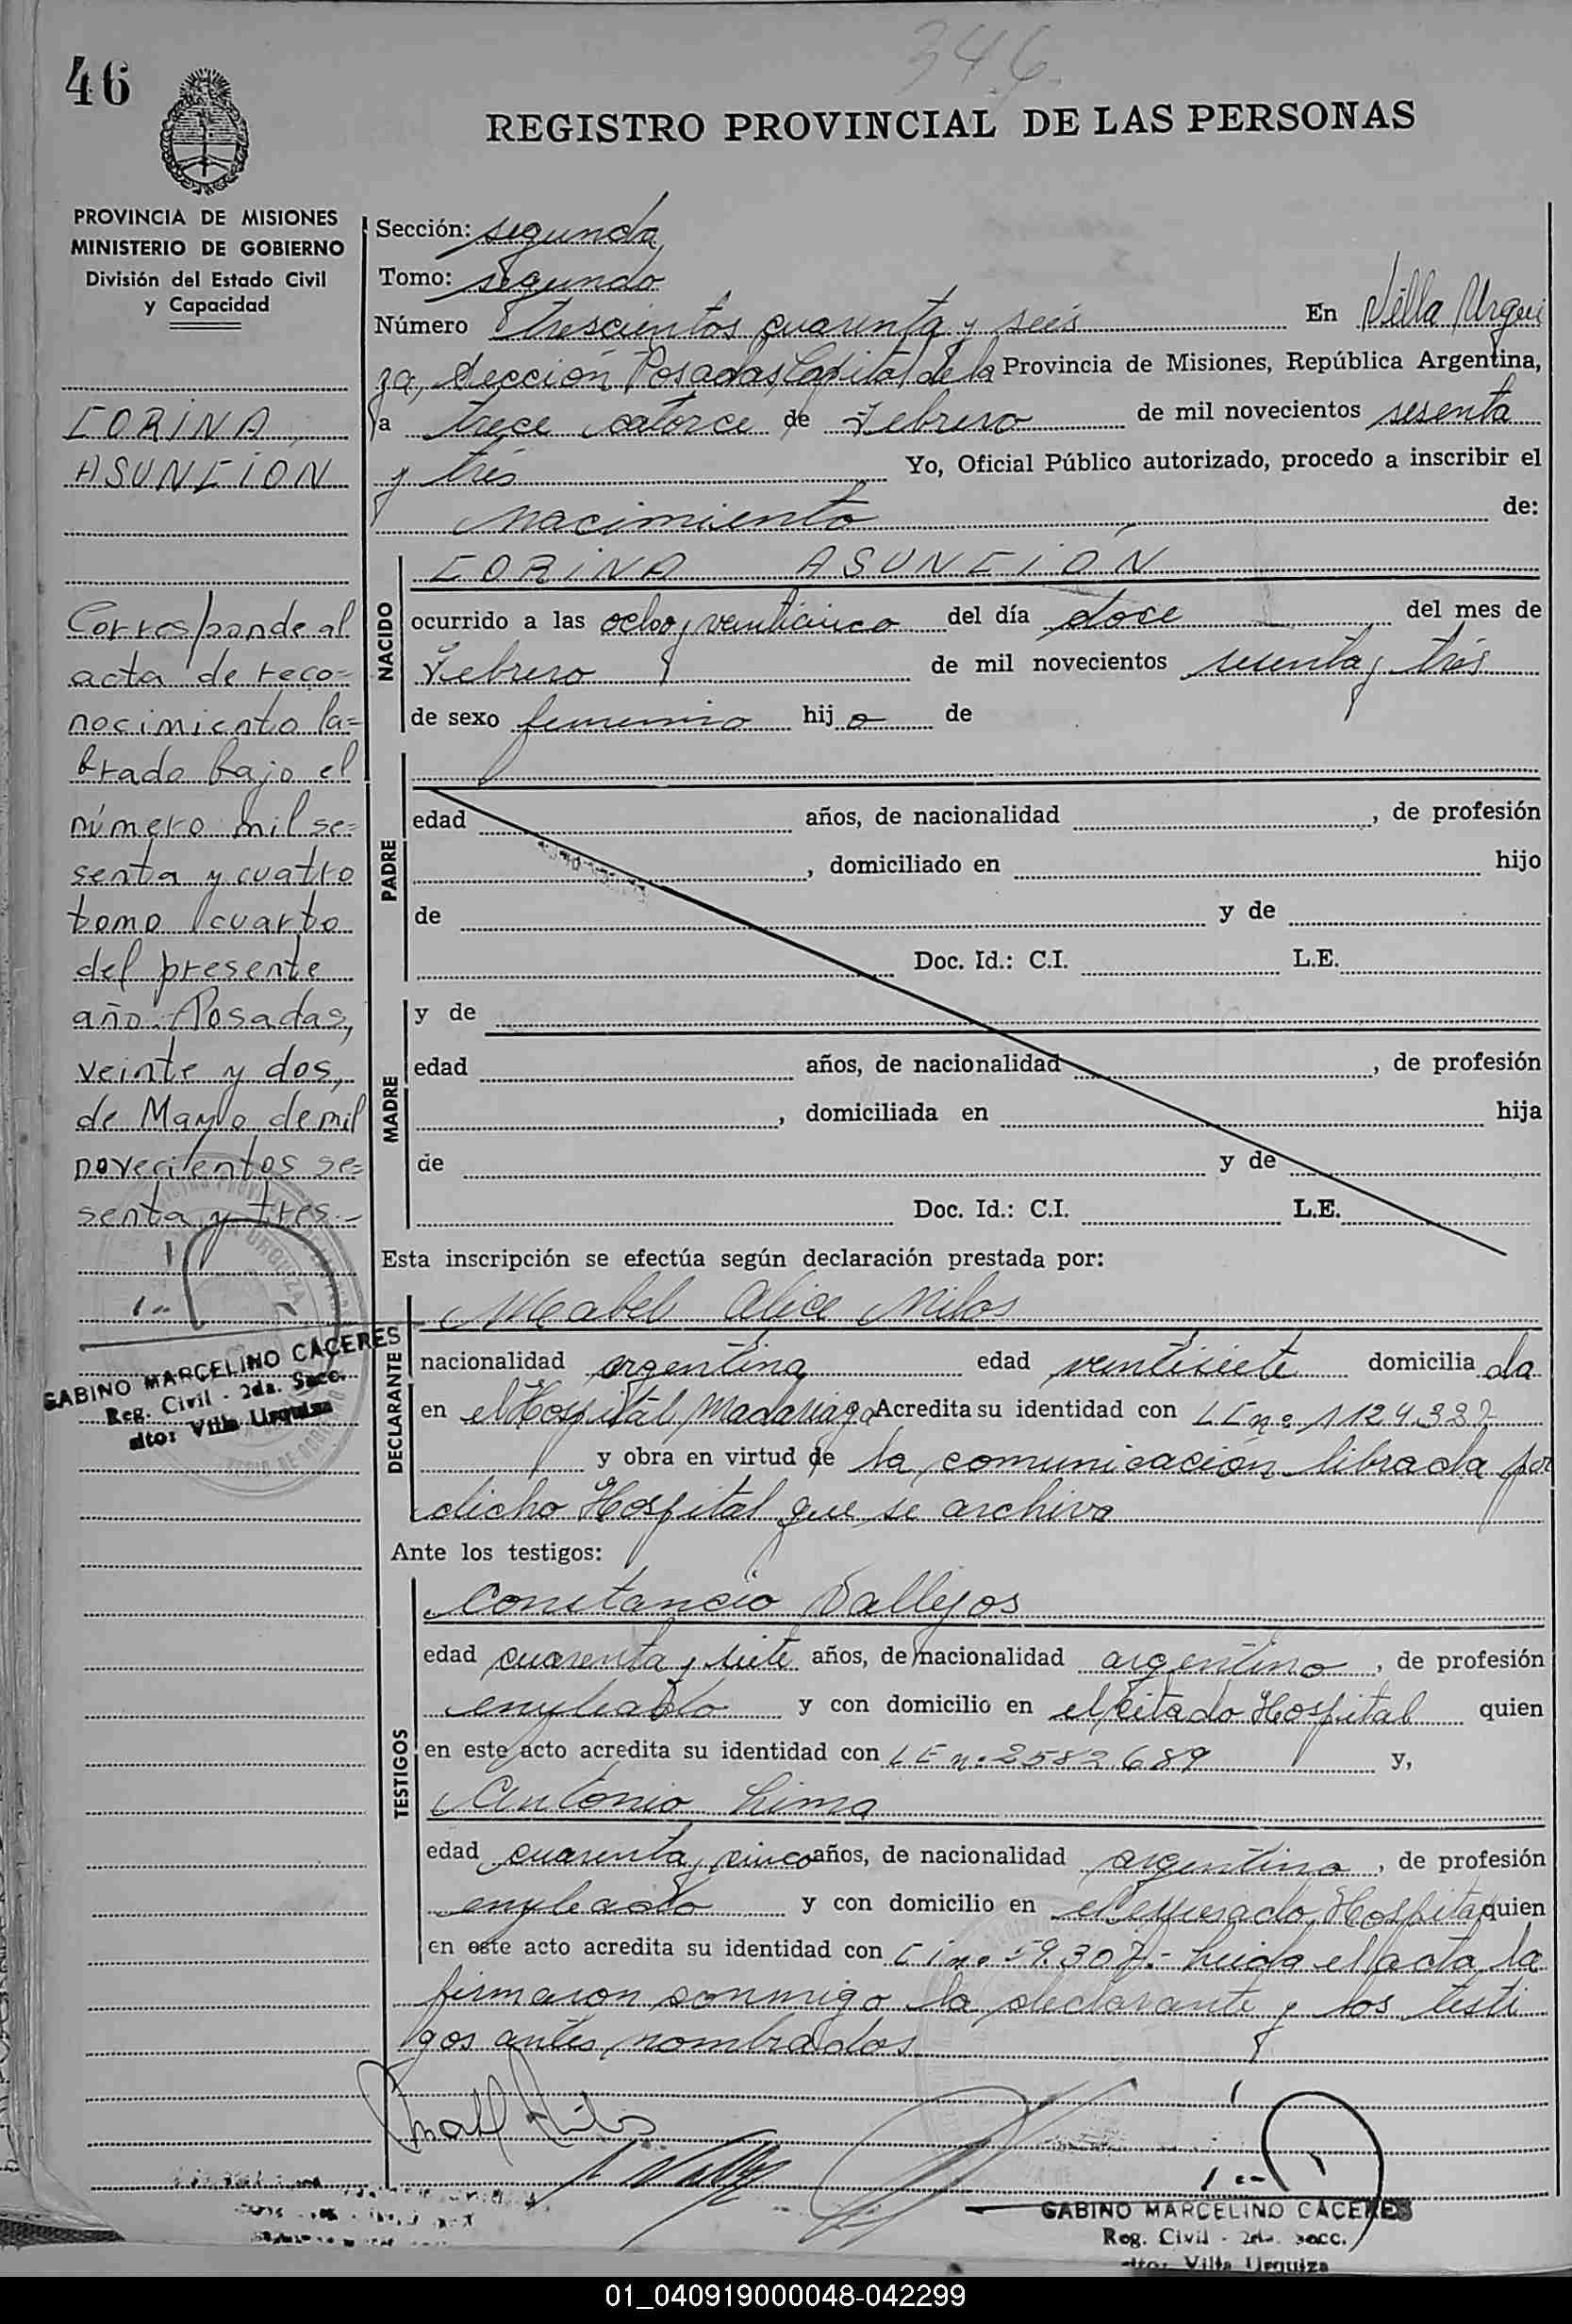 346
46
REGISTRO PROVINCIAL DE LAS PERSONAS
PROVINCIA DE MISIONES
MINISTERIO DE GOBIERNO
División del Estado Civil
y Capacidad
CORINA,
ASUNCIÓN
Corresponde al
acta de reco=
nocimiento la=
brado bajo el
número mil se=
senta y cuatro
tomo cuarto
del presente
año. Posadas,
veinte y dos,
de Mayo de mil
novecientos se=
senta y tres.-
GABINO MARCELINO CACERES
Reg. Civil - 2da. Secc.
dto: Villa Urquiza
Sección: segunda
Tomo: segundo
Número trescientos cuarenta y seis En Villa Urqui
za, Sección Posadas, Capital de la Provincia de Misiones, República Argentina,
a trece catorce de Febrero de mil novecientos sesenta
y tres Yo, Oficial Público autorizado, procedo a inscribir el
Nacimiento de:
NACIDO
CORINA ASUNCIÓN
ocurrido a las ocho y venticinco del día doce del mes de
Febrero de mil novecientos sesenta y tres
de sexo femenino hij a de
PADRE
edad años, de nacionalidad , de profesión
, domiciliado en hijo
de y de
Doc. Id.: C.I. L.E.
MADRE
y de
edad años, de nacionalidad , de profesión
, domiciliada en hija
de y de
Doc. Id.: C.I. L.E.
Esta inscripción se efectúa según declaración prestada por:
DECLARANTE
Mabel Alice Milos
nacionalidad argentina edad ventisiete domicilia da
en el Hospital Madariaga Acredita su identidad con LE nº 1124.337
y obra en virtud de la comunicación librada por
dicho Hospital que se archiva
Ante los testigos:
TESTIGOS
Constancio Vallejos
edad cuarenta y siete años, de nacionalidad argentino, de profesión
empleado y con domicilio en el citado Hospital quien
en este acto acredita su identidad con LE nº 2582.689 y,
Antonio Lima
edad cuarenta y cinco años, de nacionalidad argentino, de profesión
empleado y con domicilio en el expresado Hospital quien
en este acto acredita su identidad con C.i nº 59.307.- Leida el acta la
firmaron conmigo la declarante y los testi
gos antes nombrados
GABINO MARCELINO CACERES
Reg. Civil - 2da. Secc.
dto: Villa Urquiza
01_040919000048-042299